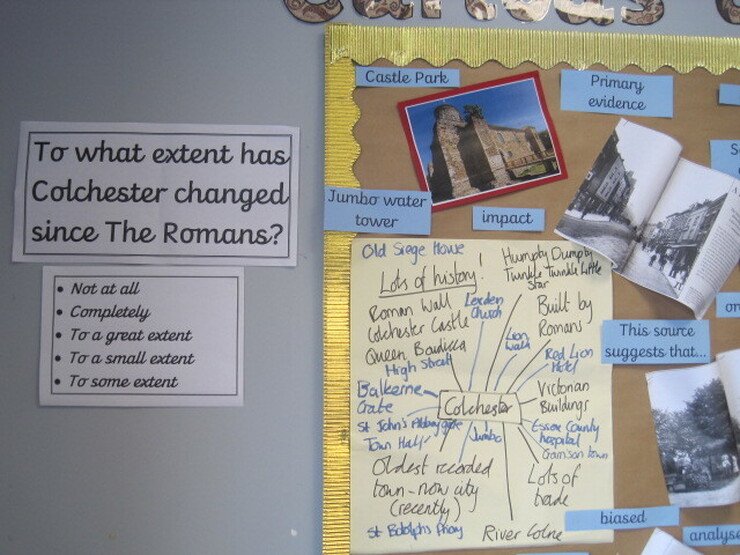 To what extent has
Colchester changed
since The Romans?
• Not at all
• Completely
• To a great extent
• To a small extent
• To some extent
Castle Park
Primary
evidence
Jumbo water
tower
impact
This source
suggests that...
biased
analyse
Old Siege House
Lots of history!
Humpty Dumpty
Twinkle Twinkle Little
Star
Roman Wall
Colchester Castle
Queen Boudicca
High Street
Lexden
Church
Lion
Walk
Built by
Romans
Red Lion
Hotel
Balkerne
Gate
Colchester
Victorian
Buildings
St John's Abbey gate
Town Hall
Jumbo
Essex County
hospital
Garrison town
Oldest recorded
town - now city
(recently)
Lots of
trade
St Botolphs Priory
River Colne